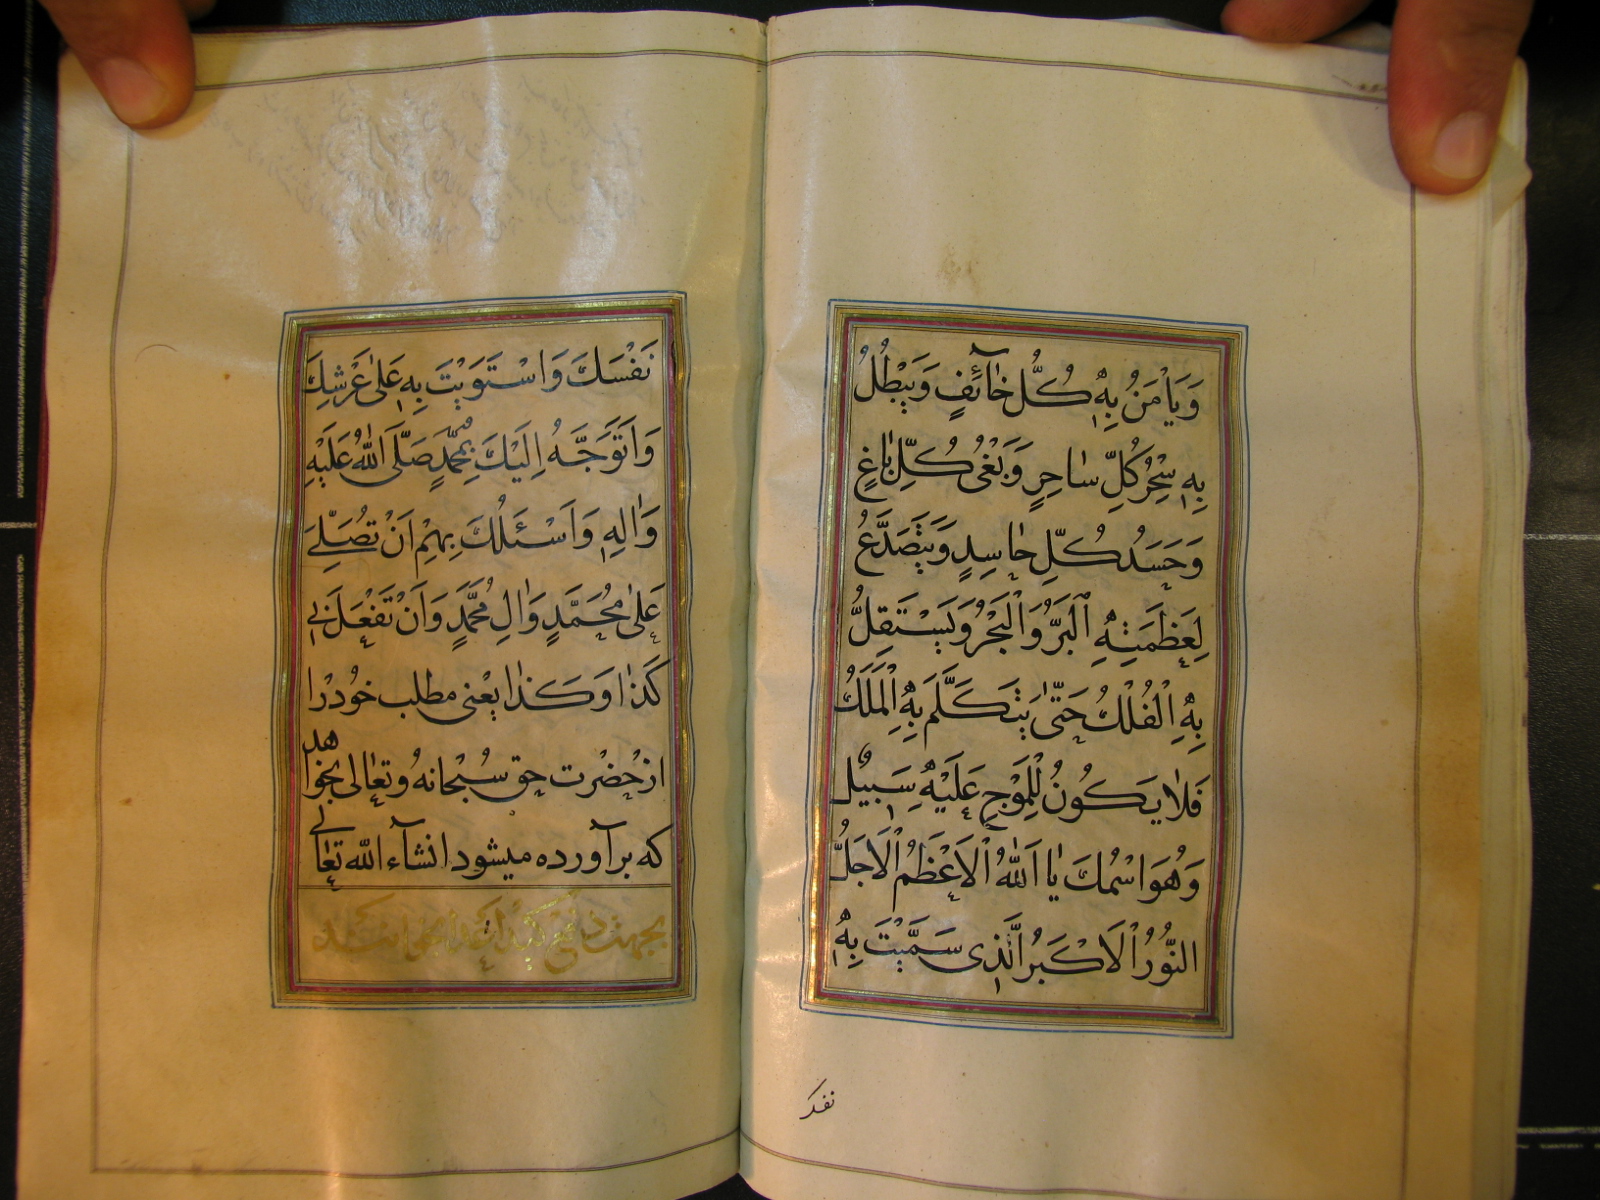 وَيَأْمَنُ بِهِ كُلُّ خٰآئِفٍ وَيَبْطُلُ
بِهِ سِحْرُ كُلِّ سٰاحِرٍ وَبَغْىُ كُلِّ بٰاغٍ
وَحَسَدُ كُلِّ حٰاسِدٍ وَيَتَصَدَّعُ
لِعَظَمَتِهِ الْبَرُّ وَالْبَحْرُ وَيَسْتَقِلُّ
بِهِ الْفُلْكُ حَتّىٰ يَتَكَلَّمَ بِهِ الْمَلَكُ
فَلٰا يَكُونُ لِلْمَوْجِ عَلَيْهِ سَبِيْلٌ
وَهُوَ اسْمُكَ يٰا اَللّٰهُ الْاَعْظَمُ الْاَجَلُّ
النُّوْرُ الْاَكْبَرُ الَّذِى سَمَّيْتَ بِهِ
نفسک
نَفْسَكَ وَاسْتَوَيْتَ بِهِ عَلىٰ عَرْشِكَ
وَاَتَوَجَّهُ اِلَيْكَ بِمُحَمَّدٍ صَلَّى اللّٰهُ عَلَيْهِ
وَاٰلِهِ وَاَسْئَلُكَ بِهِمْ اَنْ تُصَلِّىَ
عَلىٰ مُحَمَّدٍ وَاٰلِ مُحَمَّدٍ وَاَنْ تَفْعَلَ بِى
كَذٰا وَكَذٰا يعْنى مطلب خود را
از حضرت حق سُبْحٰانهُ وتعٰالى بخواهد
که برآورده میشود انشآء الله تعٰالى